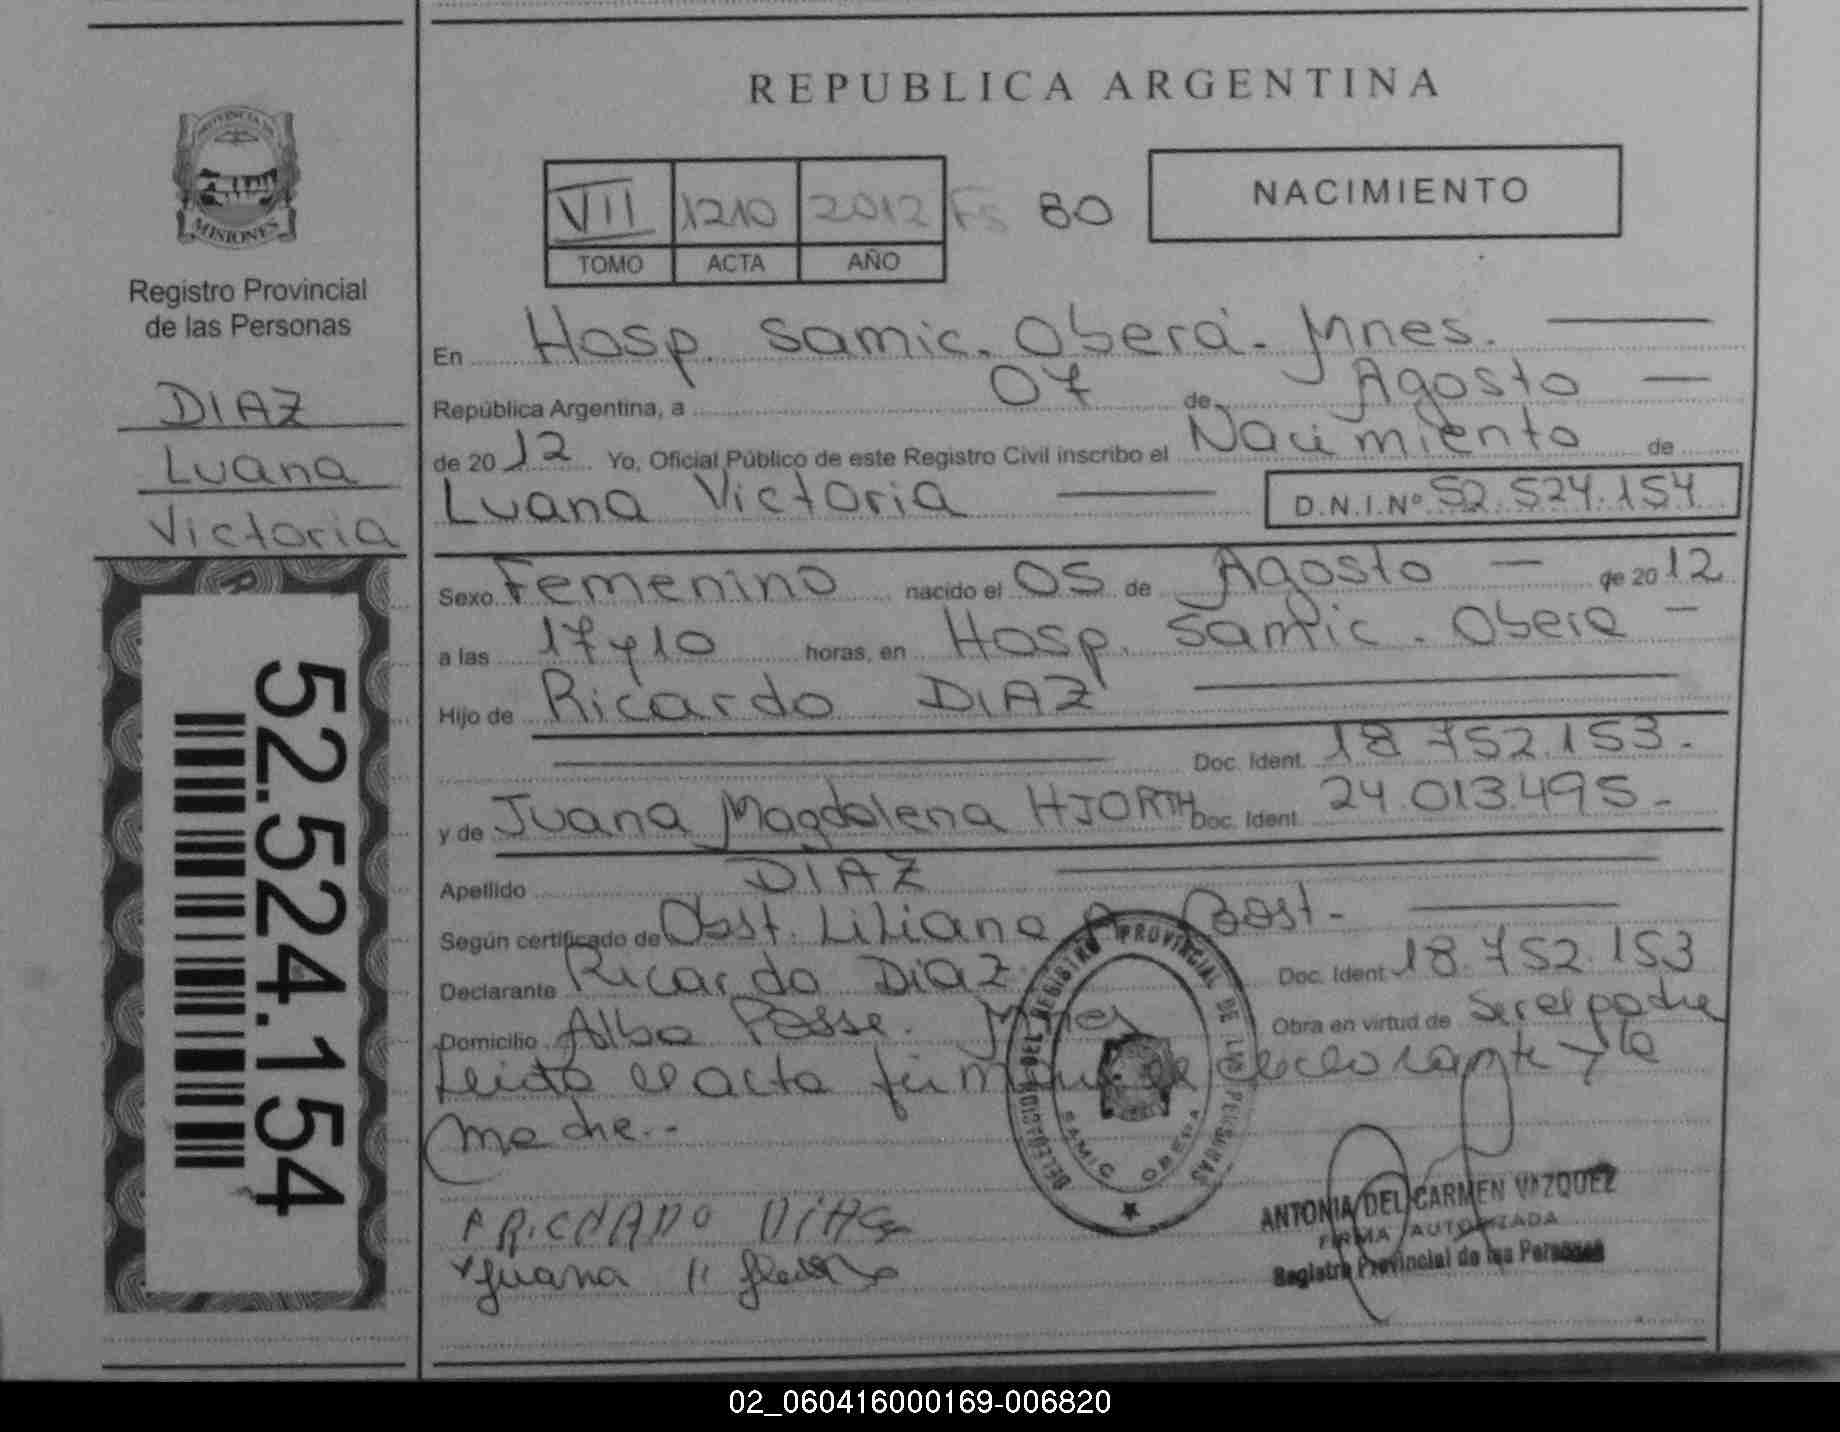 REPUBLICA ARGENTINA
PROVINCIA DE
MISIONES
Registro Provincial
de las Personas
DIAZ
Luana
Victoria
52.524.154
VII 1210 2012 Fs 80
TOMO ACTA AÑO
NACIMIENTO
En Hosp. Samic. Oberá. Mnes.
República Argentina, a 07 de Agosto
de 2012 Yo, Oficial Público de este Registro Civil inscribo el Nacimiento de
Luana Victoria D.N.I.Nº 52.524.154
Sexo Femenino nacido el 05 de Agosto de 2012
a las 17y10 horas, en Hosp. Samic. Obera
Hijo de Ricardo DIAZ
Doc. Ident. 18.752.153.
y de Juana Magdalena HJORTH Doc. Ident. 24.013.495
Apellido DIAZ
Según certificado de Obst. Liliana Bost.
Declarante Ricardo Diaz Doc. Ident. 18.752.153
Domicilio Alba Posse. Mnes Obra en virtud de Ser el padre
Leida el acta firman el declarante y la
madre.-
DELEGACION DEL REGISTRO PROVINCIAL DE LAS PERSONAS
SAMIC OBERA
RICARDO DIAZ
Juana
ANTONIA DEL CARMEN VAZQUEZ
FIRMA AUTORIZADA
Registro Provincial de las Personas
02_060416000169-006820